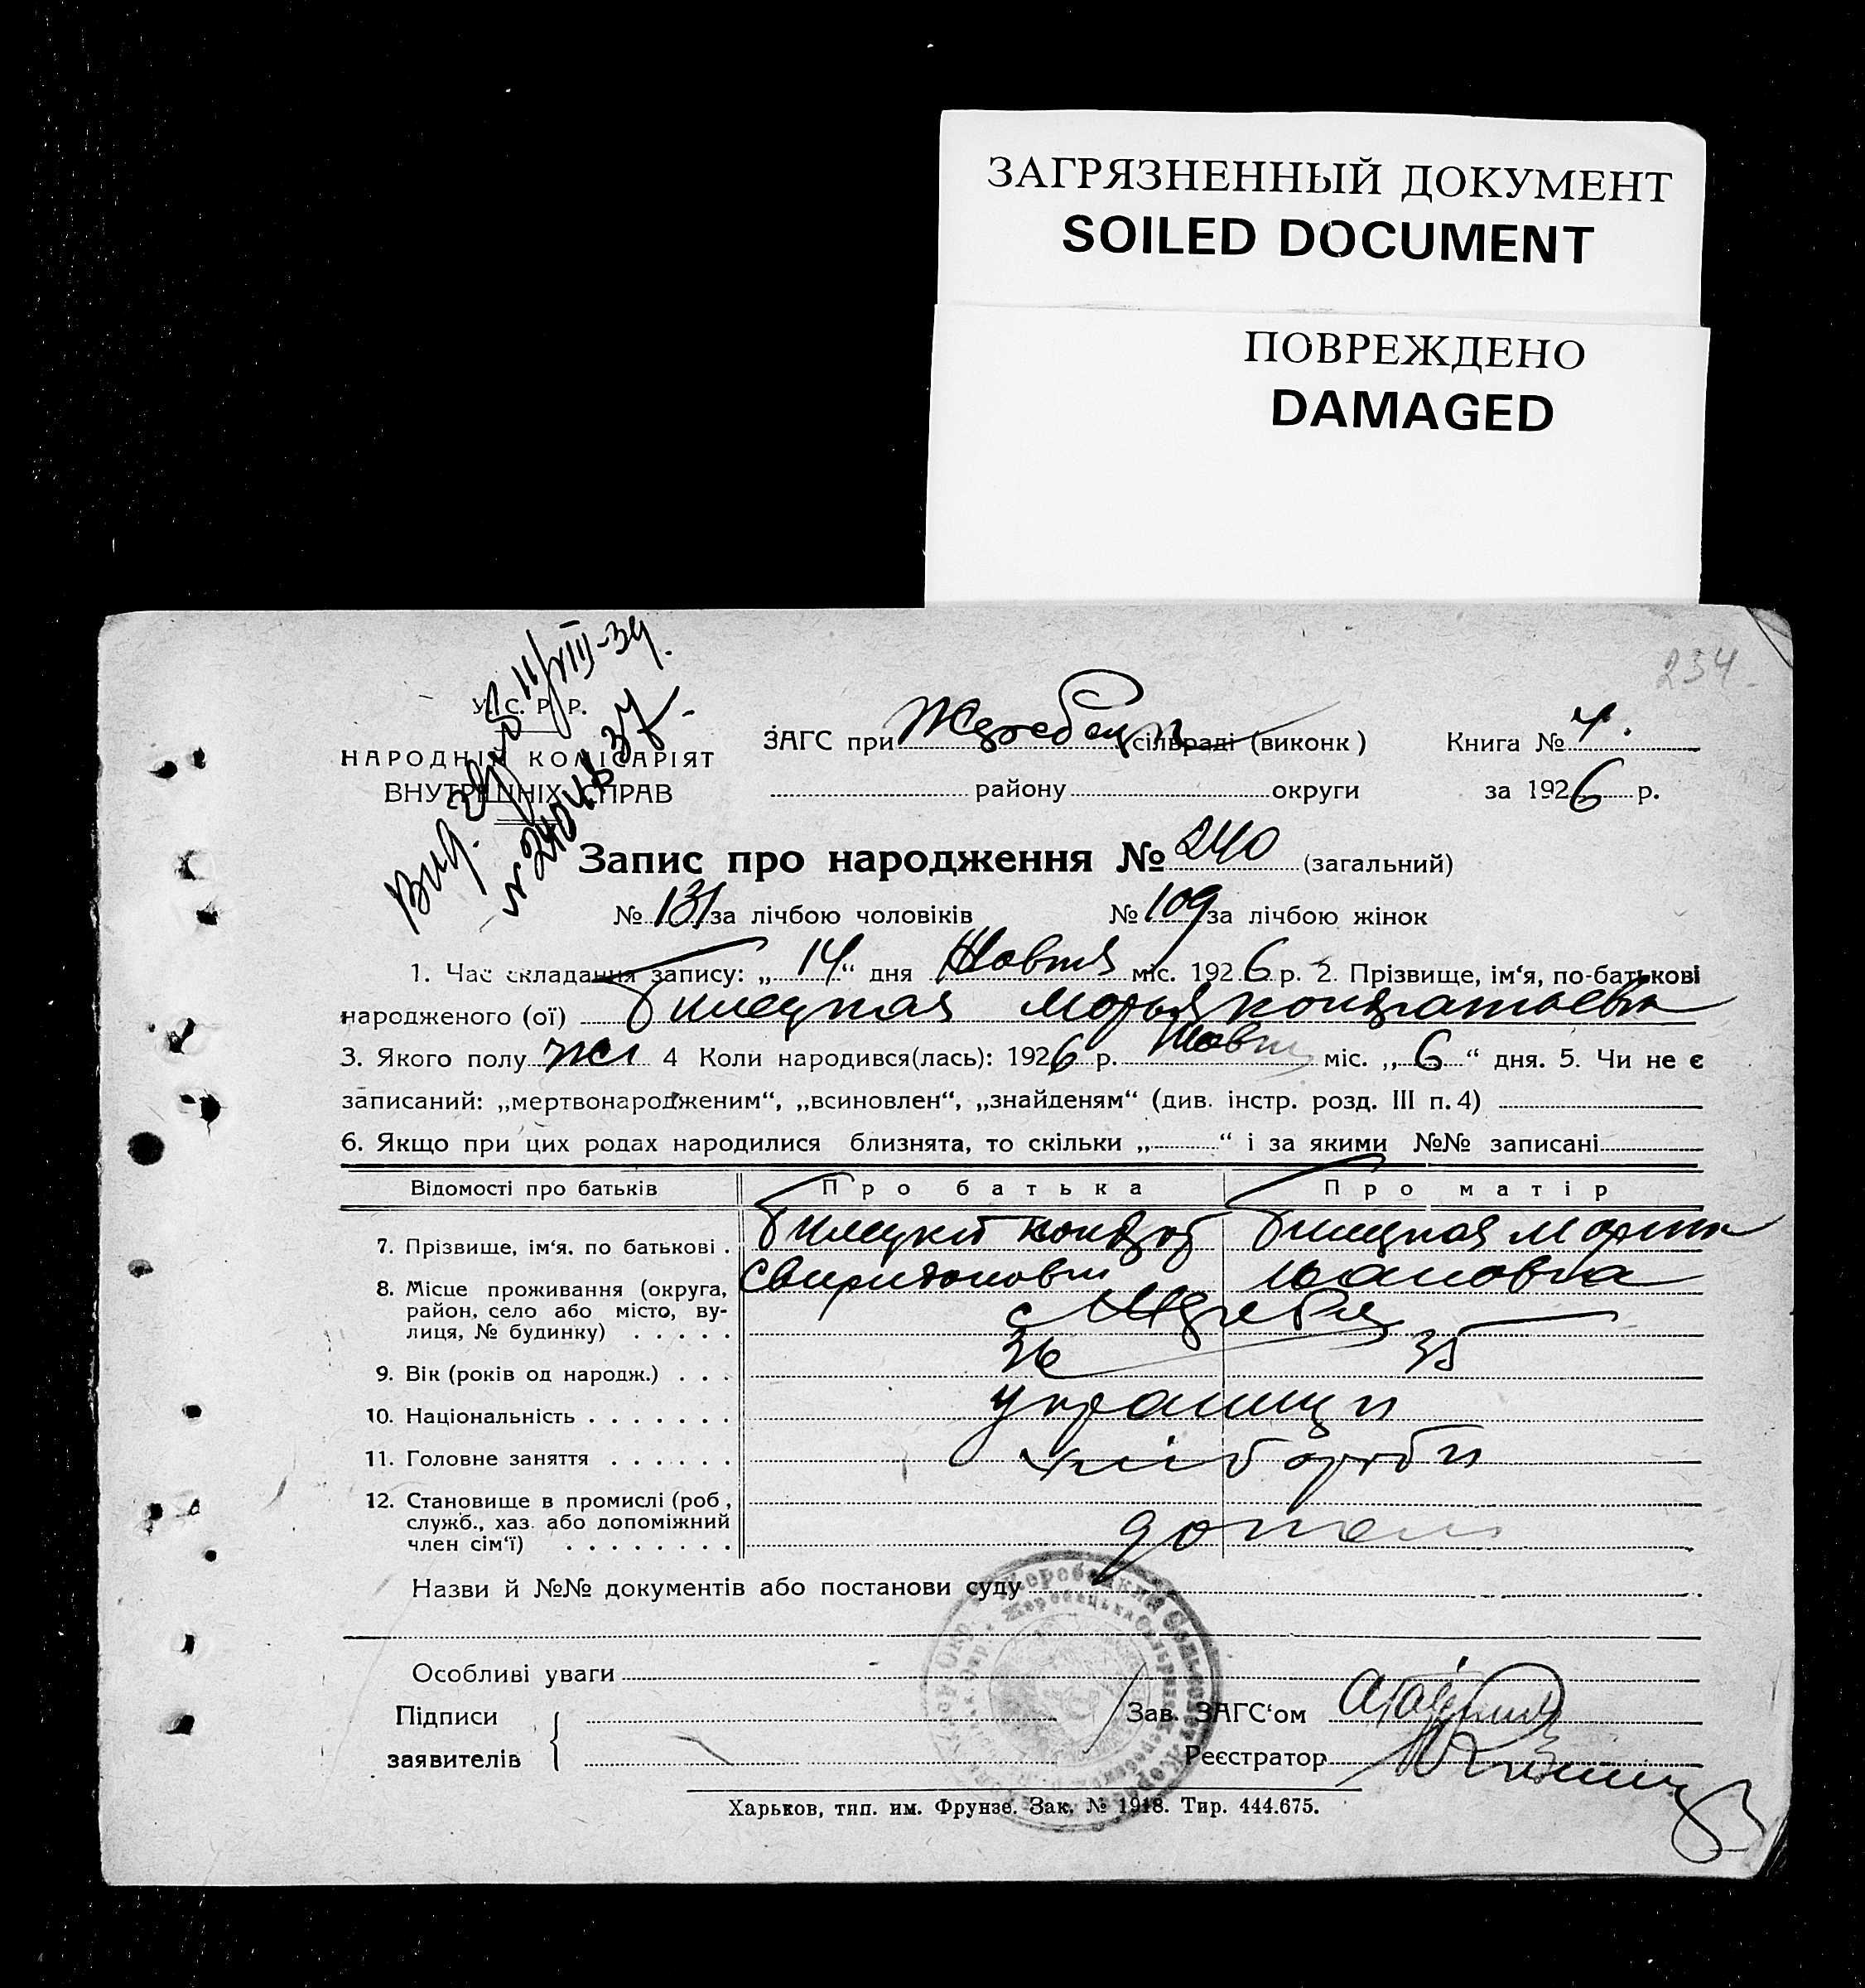 ЗАГРЯЗНЕННЫЙ ДОКУМЕНТ
SOILED DOCUMENT
ПОВРЕЖДЕНО
DAMAGED
234
У. С. Р. Р.
НАРОДНІЙ КОМІСАРІЯТ
ВНУТРІШНІХ СПРАВ
ЗАГС при сільраді (виконк)
району округи
Книга № 4.
за 1926 р.
Запис про народження № 240 (загальний)
№ 131 за лічбою чоловіків № 109 за лічбою жінок
1. Час складання запису: „14“ дня Жовтня міс. 1926 р. 2. Прізвище, ім‘я, по-батькові
народженого (ої) Билецкая
3. Якого полу жін 4 Коли народився(лась): 1926 р. Жовтн міс. „6“ дня. 5. Чи не є
записаний: „мертвонародженим“, „всиновлен“, „знайденям“ (див. інстр. розд. III п. 4)
6. Якщо при цих родах народилися близнята, то скільки „ “ і за якими №№ записані
Відомості про батьків Про батька Про матір
7. Прізвище, ім‘я, по батькові . Билецкій Билецкая
Свиридонович Ивановна
8. Місце проживання (округа,
район, село або місто, ву-
лиця, № будинку) . . . . .
9. Вік (років од народж.) . . . 36 35
10. Національність . . . . . . . українци
11. Головне заняття . . . . . . хлібороби
12. Становище в промислі (роб,
служб., хаз. або допоміжний
член сім‘ї) . . . . . . . .
Назви й №№ документів або постанови суду
Особливі уваги
Підписи
заявителів
Зав. ЗАГС‘ом
Реєстратор
Харьков, тип. им. Фрунзе. Зак. № 1918. Тир. 444.675.